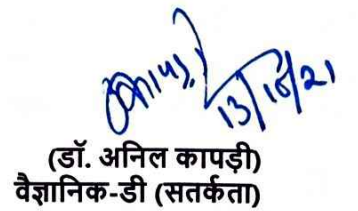 13/10/21
(डॉ. अनिल कापड़ी)
वैज्ञानिक-डी (सतर्कता)